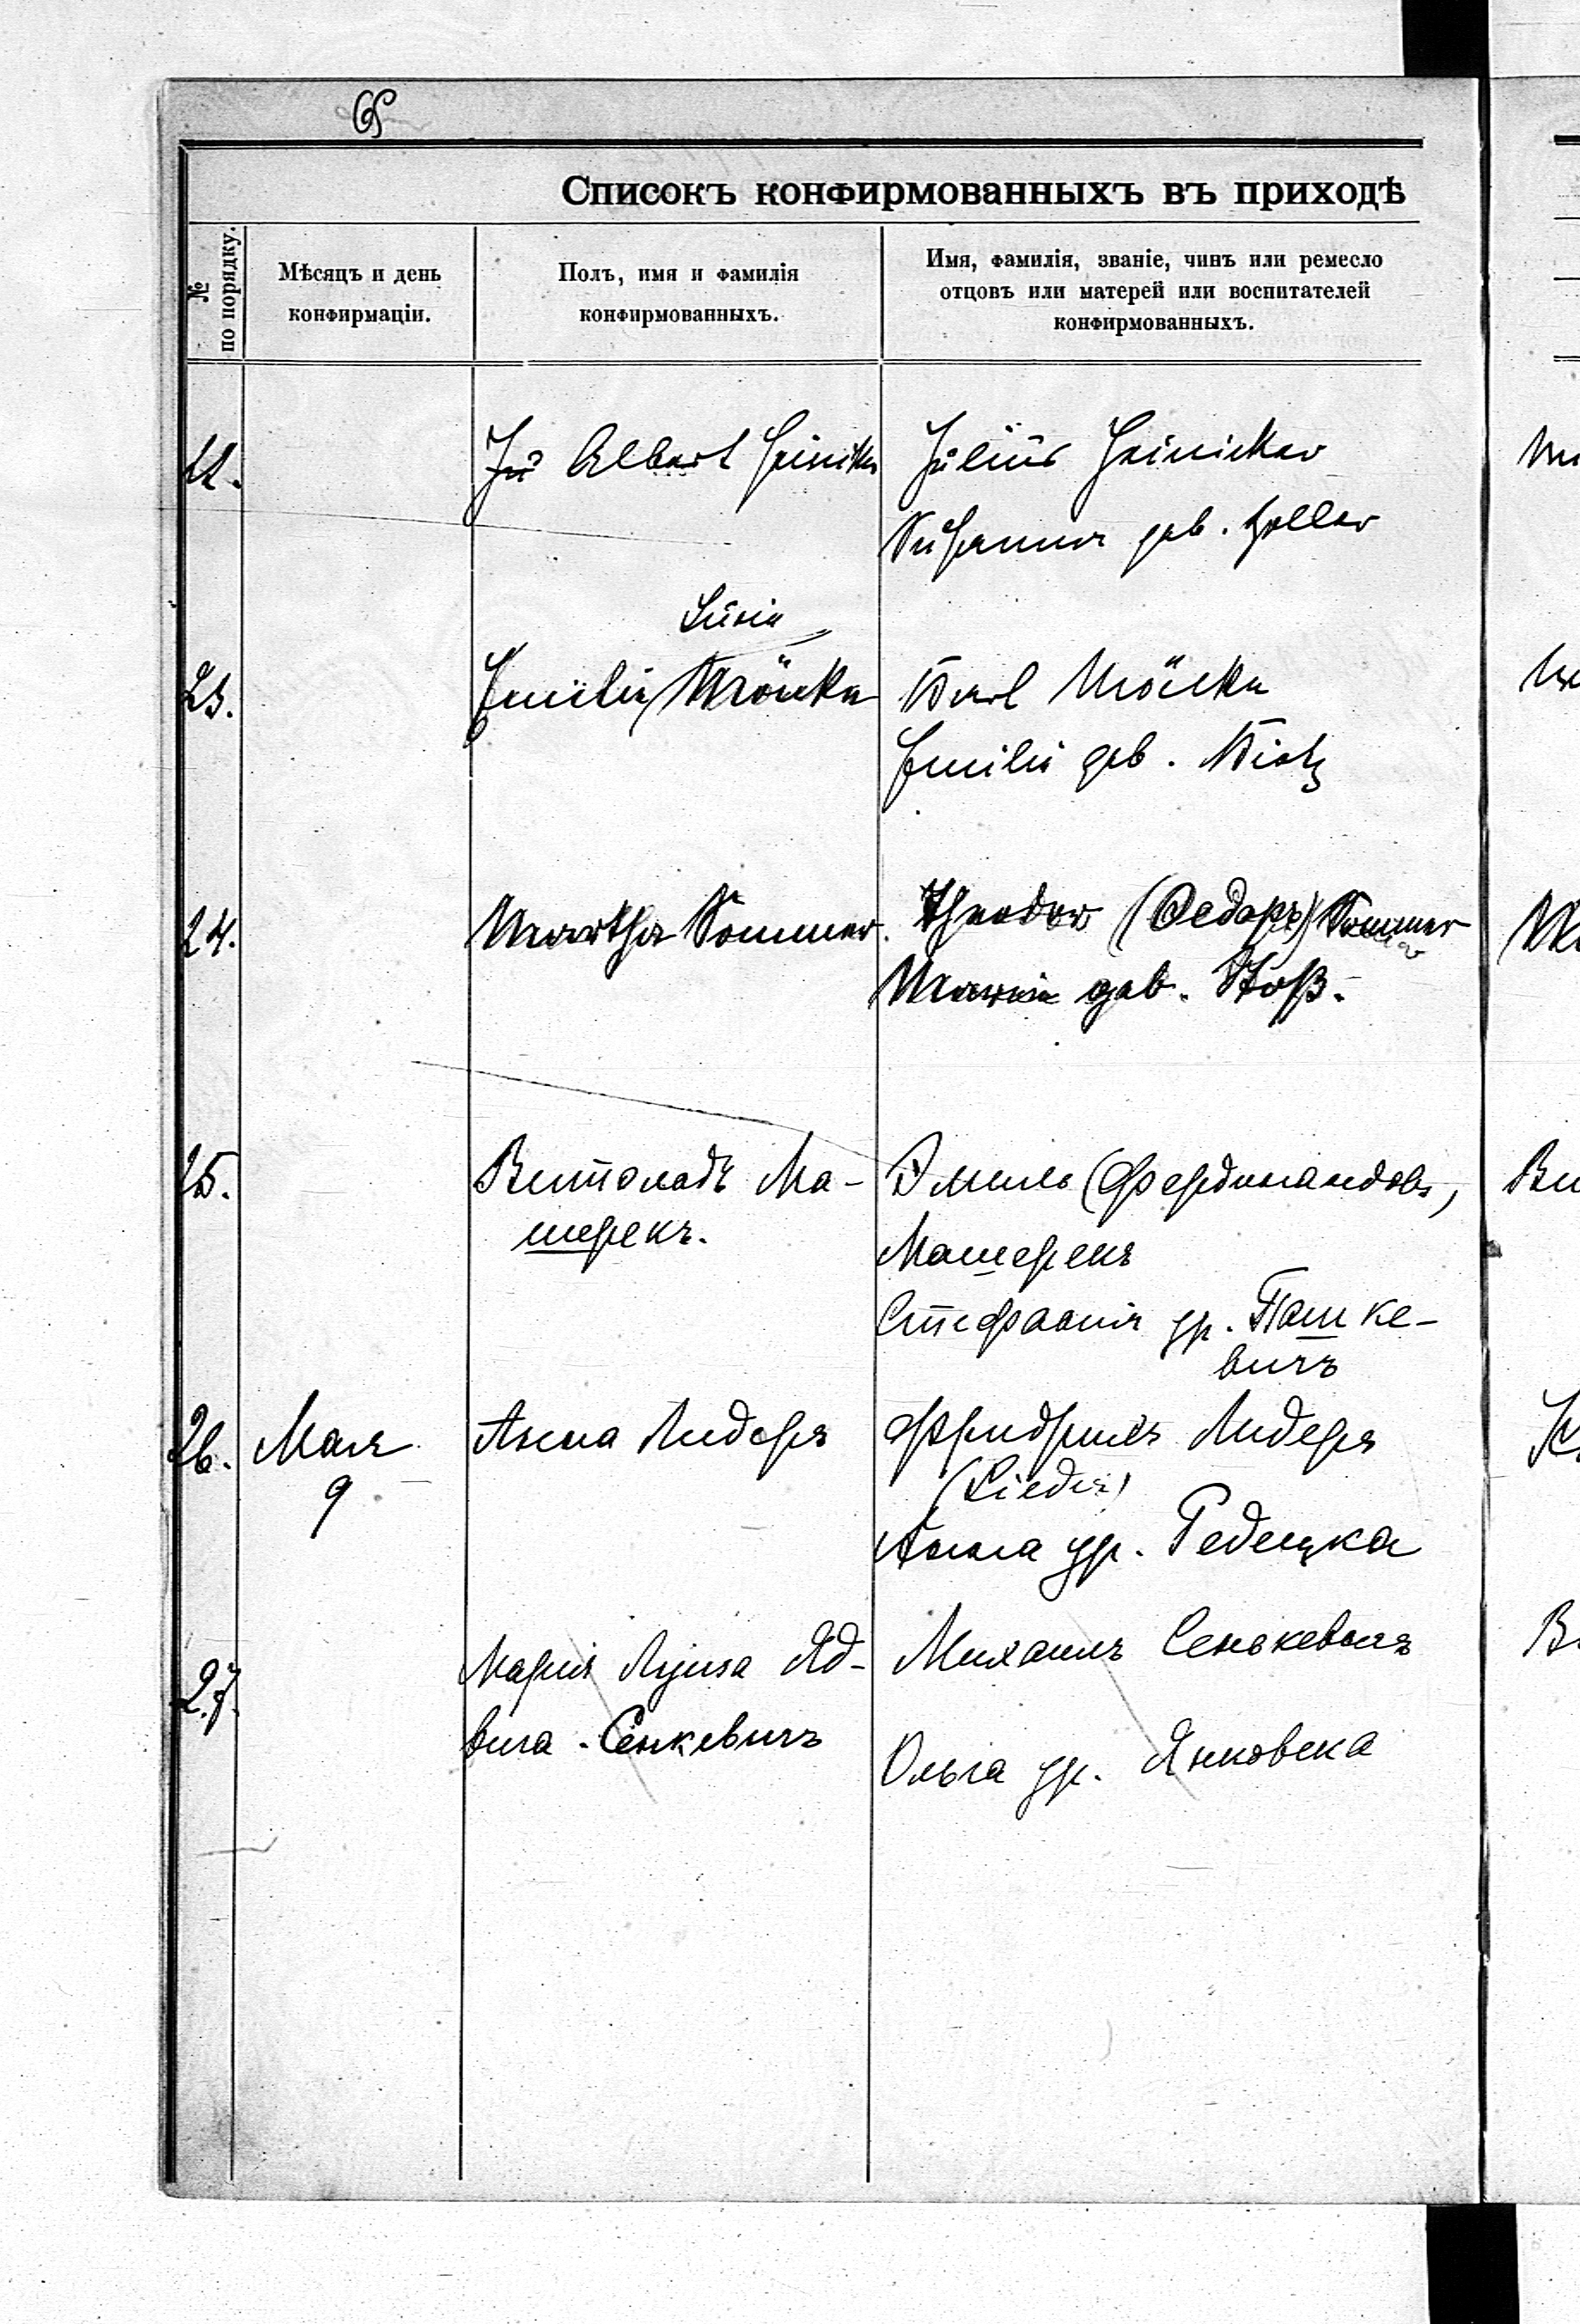 Списокъ конфирмованныхъ въ приходѣ
№ по порядку.
Мѣсяцъ и день
конфирмаціи.
Полъ, имя и фамилія
конфирмованныхъ.
Имя, фамилія, званіе, чинъ или ремесло
отцовъ или матерей или воспитателей
конфирмованныхъ.
Albert
Julius Heinicker
Susanna geb. Zeller
23.
Lucie
Emilie
Karl
Emilie geb.
24.
Martha Sommer.
Theodor (Ѳедоръ) Sommer
Maria geb. Stoß.
25.
Витольдъ Ма-
шерекъ.
Эмиль (Фердинандовъ)
Машерекъ
Стефанія ур. Пашке-
вичъ
26.
Мая
9
Анна Лидеръ
Фридрихъ Лидеръ
(Lieder)
Анна ур. Редецка
27.
Марія Луиза Яд-
вига Сенкевичъ
Михаилъ Сенькевичъ
Ольга ур. Янковска